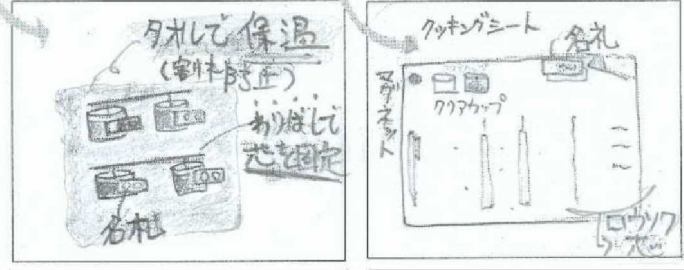 タオルで保温
(割れ防止)
わりばしで
芯を固定
名札
クッキングシート
名札
マグネット
クリアカップ
ロウソク